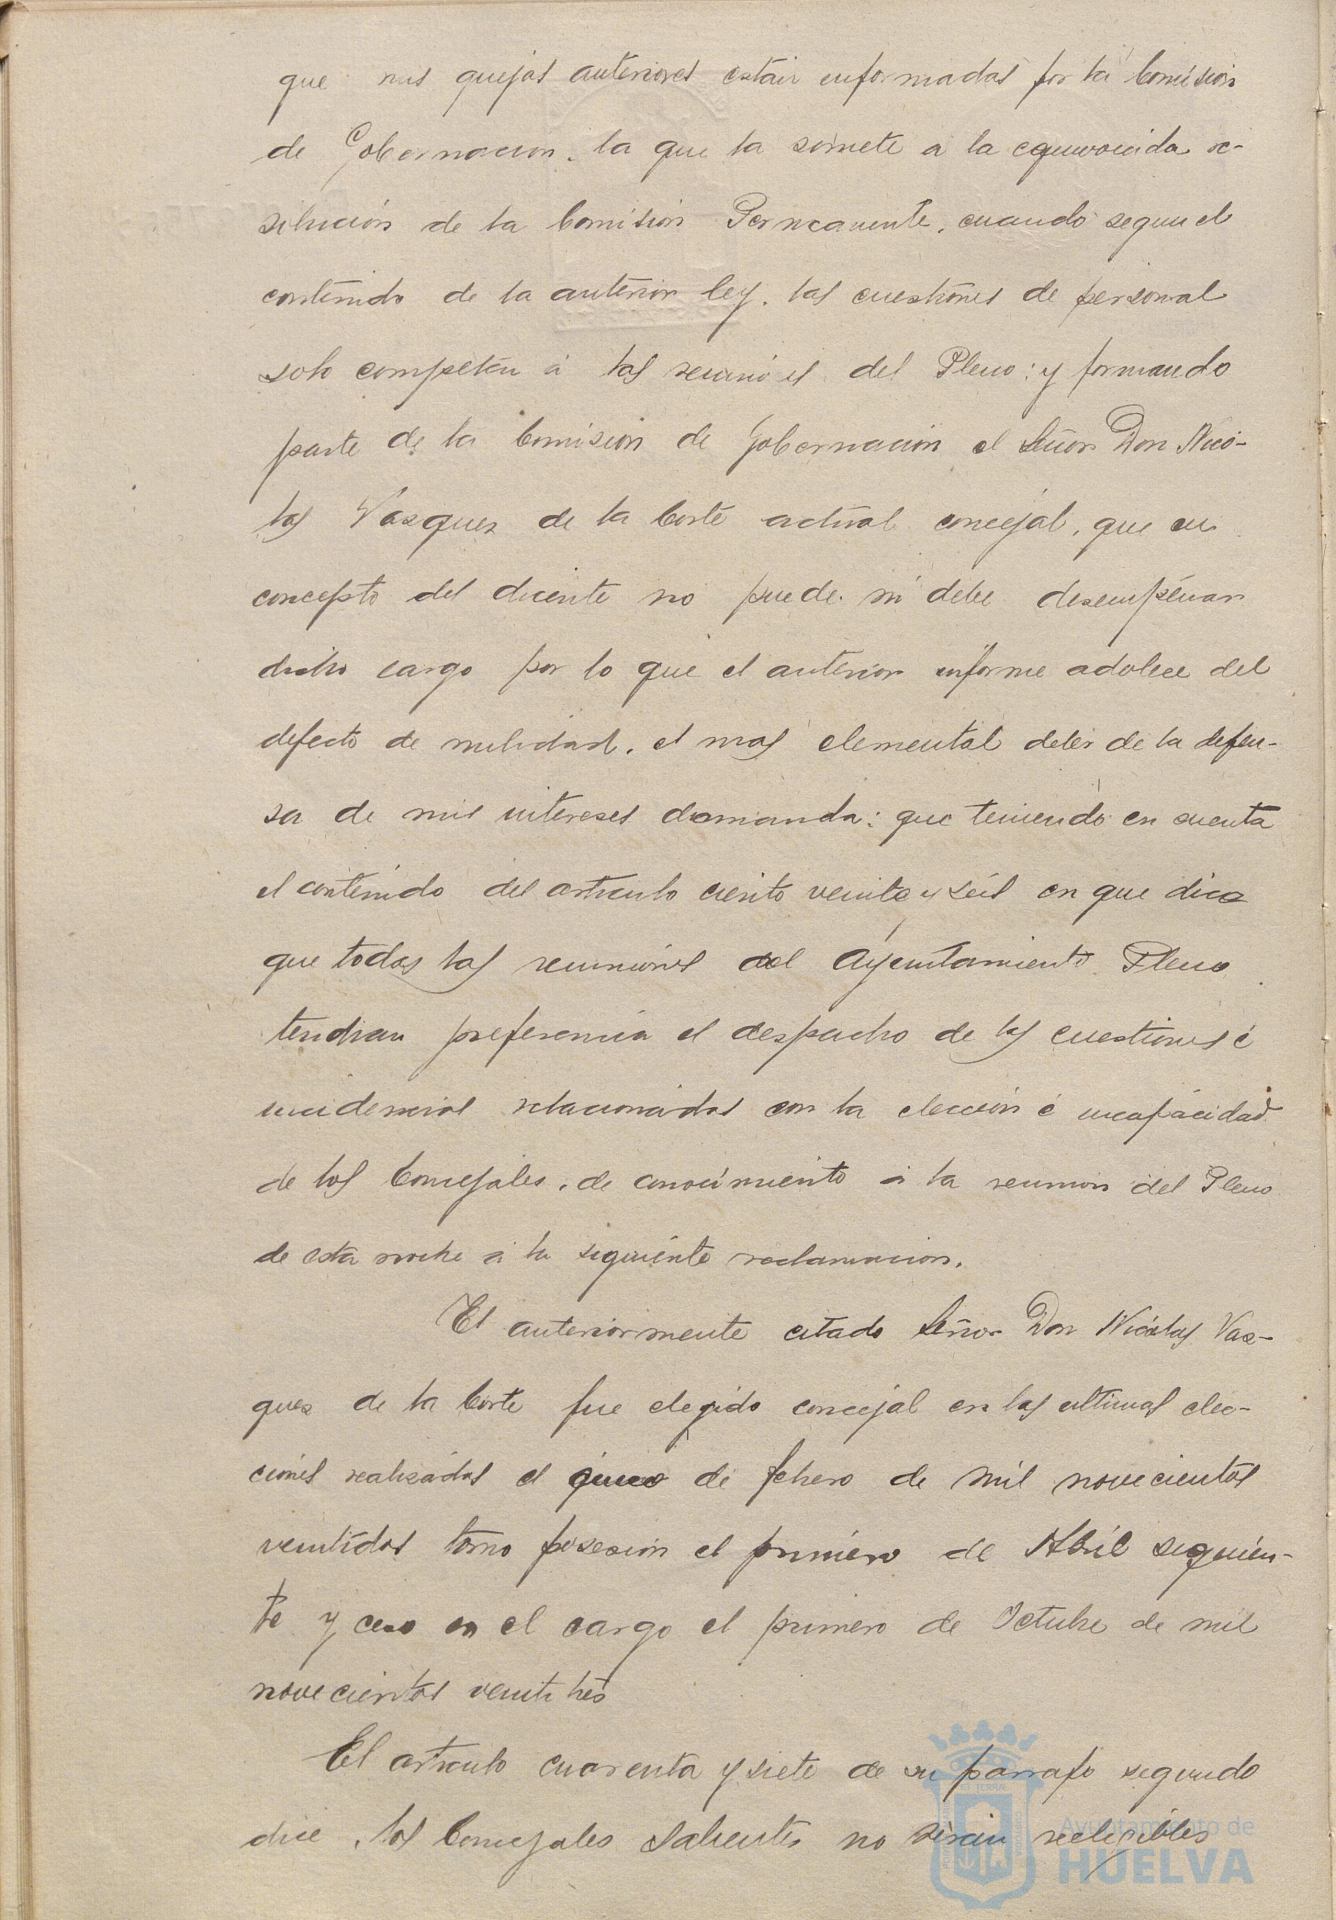 que mis quejas anteriores estan informadas por la Comisión
de Gobernacion, la que la somete a la equivocada re-
solución de la Comisión Permanente, cuando segun el
contenido de la anterior ley, las cuestiones de personal
solo competen á las reuniones del Pleno: y formando
parte de la Comision de Gobernación el Señor Don Nico-
las Vasquez de la Corte actual concejal, que en
concepto del dicente no puede ni debe desempeñar
dicho cargo por lo que el anterior informe adolece del
defecto de nulidad, el mas elemental deber de la defen-
sa de mis intereses demanda: que teniendo en cuenta
el contenido del articulo ciento veinte y séis en que dice
que todas las reuniones del Ayuntamiento Pleno
tendran preferencia el despacho de las cuestiones é
incidencias relacionadas con la elección é incapacidad
de los Concejales, de conocimiento á la reunion del Pleno
de esta noche á la siguiente reclamacion.
El anteriormente citado Señor Don Nicolas Vas-
quez de la Corte fue elegido concejal en las ultimas elec-
ciones realizadas el cinco de febrero de mil novecientos
veintidos tomo posesion el primero de Abril siguien-
te y ceso en el cargo el primero de Octubre de mil
novecientos veintitres
El articulo cuarenta y siete de su parrafo segundo
dice, los Concejales salientes no serán reelegibles
Ayuntamiento de
HUELVA